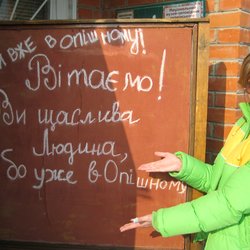 вже в Опішному!
Вітаємо!
Ви щаслива
Людина,
бо уже в Опішному